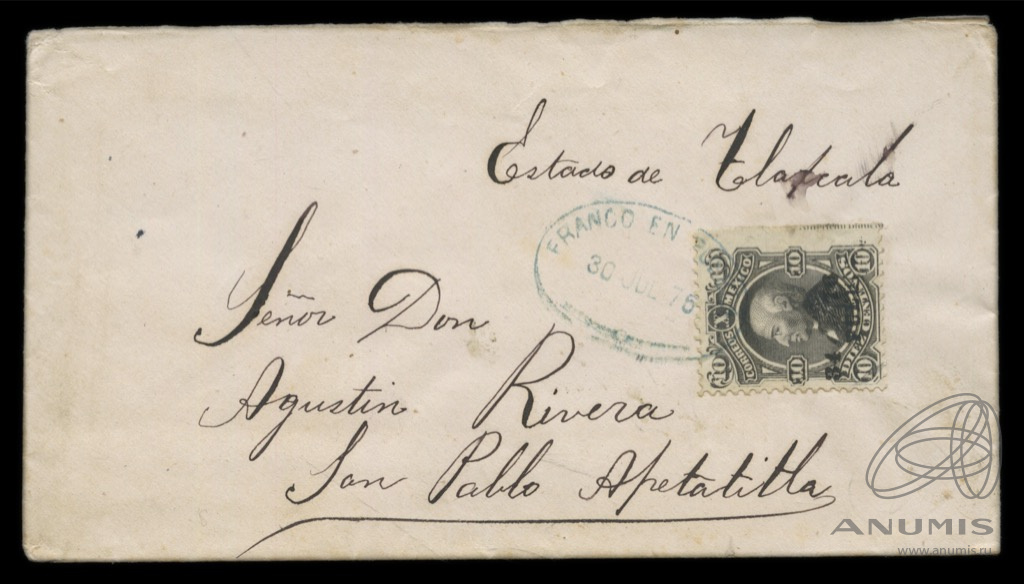 Estado de Tlaxcala
FRANCO EN
30 JUL 76
10 10 10
CORREOS X MEXICO
DIEZ CENTAVOS
10 10 10
Señor Don
Agustin Rivera
San Pablo Apetatitla
ANUMIS
www.anumis.ru